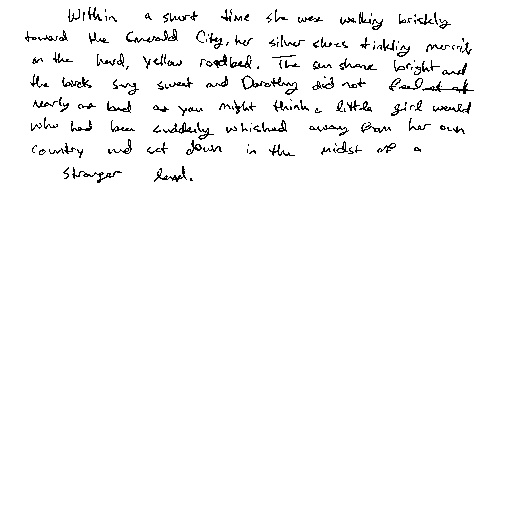 Within a short time she was walking briskly
toward the Emerald City, her silver shoes tinkling merrily
on the hard, yellow roadbed. The sun shone bright and
the birds sang sweet and Dorothy did not
nearly as bad as you might think a little girl would
who had been suddenly whisked away from her own
country and set down in the midst of a
stranger land.